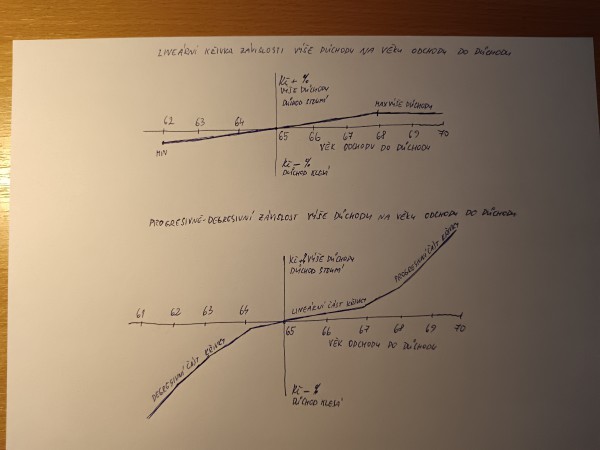 LINEÁRNÍ KŘIVKA ZÁVISLOSTI VÝŠE DŮCHODU NA VĚKU ODCHODU DO DŮCHODU
Kč + %
VÝŠE DŮCHODU
DŮCHOD STOUPÁ
MAX VÝŠE DŮCHODU
62 63 64 65 66 67 68 69 70
VĚK ODCHODU DO DŮCHODU
MIN
Kč - %
DŮCHOD KLESÁ
PROGRESIVNĚ-DEGRESIVNÍ ZÁVISLOST VÝŠE DŮCHODU NA VĚKU ODCHODU DO DŮCHODU
Kč + % VÝŠE DŮCHODU
DŮCHOD STOUPÁ
PROGRESIVNÍ ČÁST KŘIVKY
LINEÁRNÍ ČÁST KŘIVKY
61 62 63 64 65 66 67 68 69 70
VĚK ODCHODU DO DŮCHODU
DEGRESIVNÍ ČÁST KŘIVKY
Kč - %
DŮCHOD KLESÁ